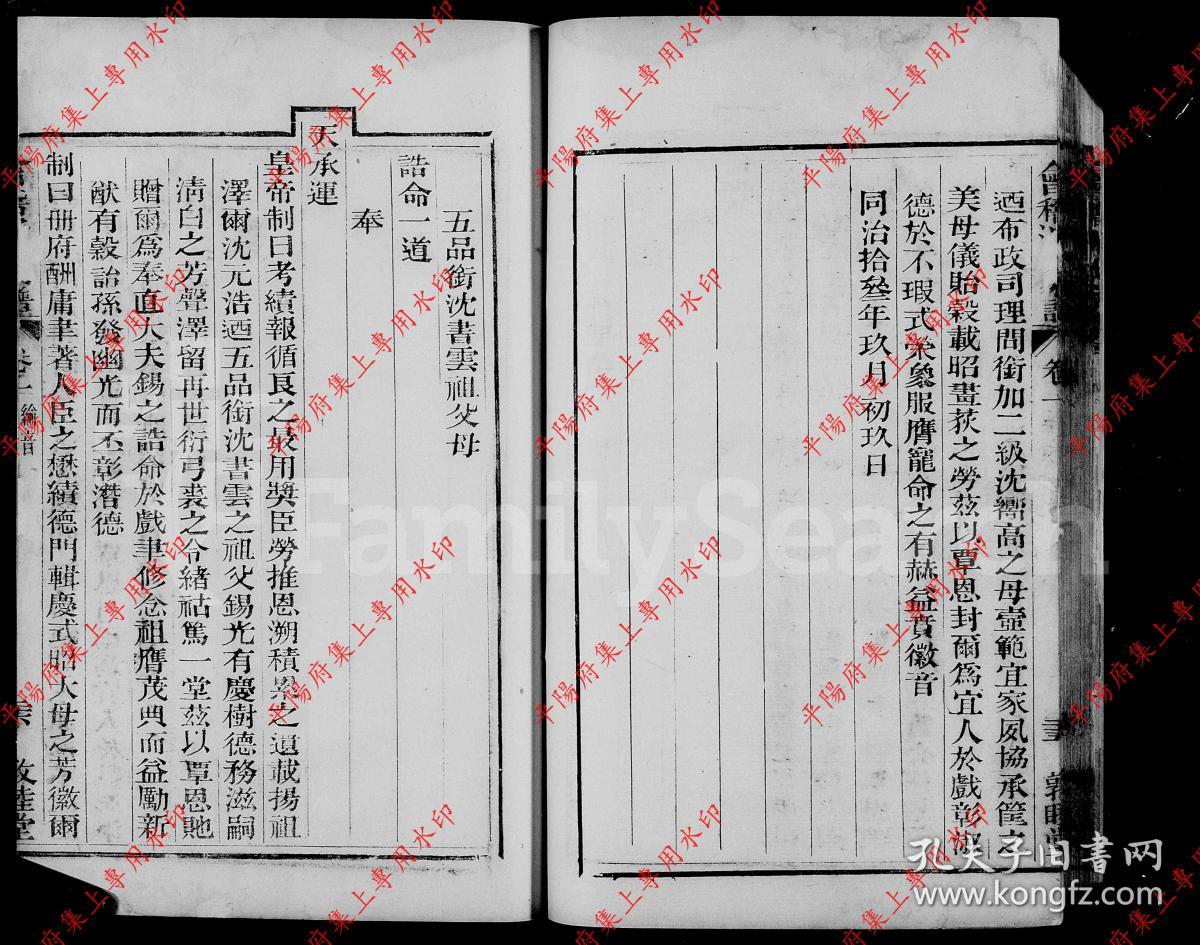 迺布政司理問銜加二級沈嚮高之母壼範宜家夙協承筐之
美母儀貽穀載昭畫荻之勞茲以覃恩封爾爲宜人於戲彰淑
德於不瑕式榮象服膺寵命之有赫益賁徽音
同治拾叄年玖月初玖日
五品銜沈書雲祖父母
誥命一道
奉
天承運
皇帝制曰考績報循良之最用奬臣勞推恩溯積累之遺載揚祖
澤爾沈元浩迺五品銜沈書雲之祖父錫光有慶樹德務滋嗣
淸白之芳聲澤留再世衍弓裘之令緒祜篤一堂茲以覃恩貤
贈爾爲奉直大夫錫之誥命於戲聿修念祖膺茂典而益勵新
猷有穀詒孫發幽光而丕彰潛德
制曰冊府酬庸聿著人臣之懋績德門輯慶式昭大母之芳徽爾
孔夫子旧书网
www.kongfz.com
FamilySearch
平陽府集上專用水印